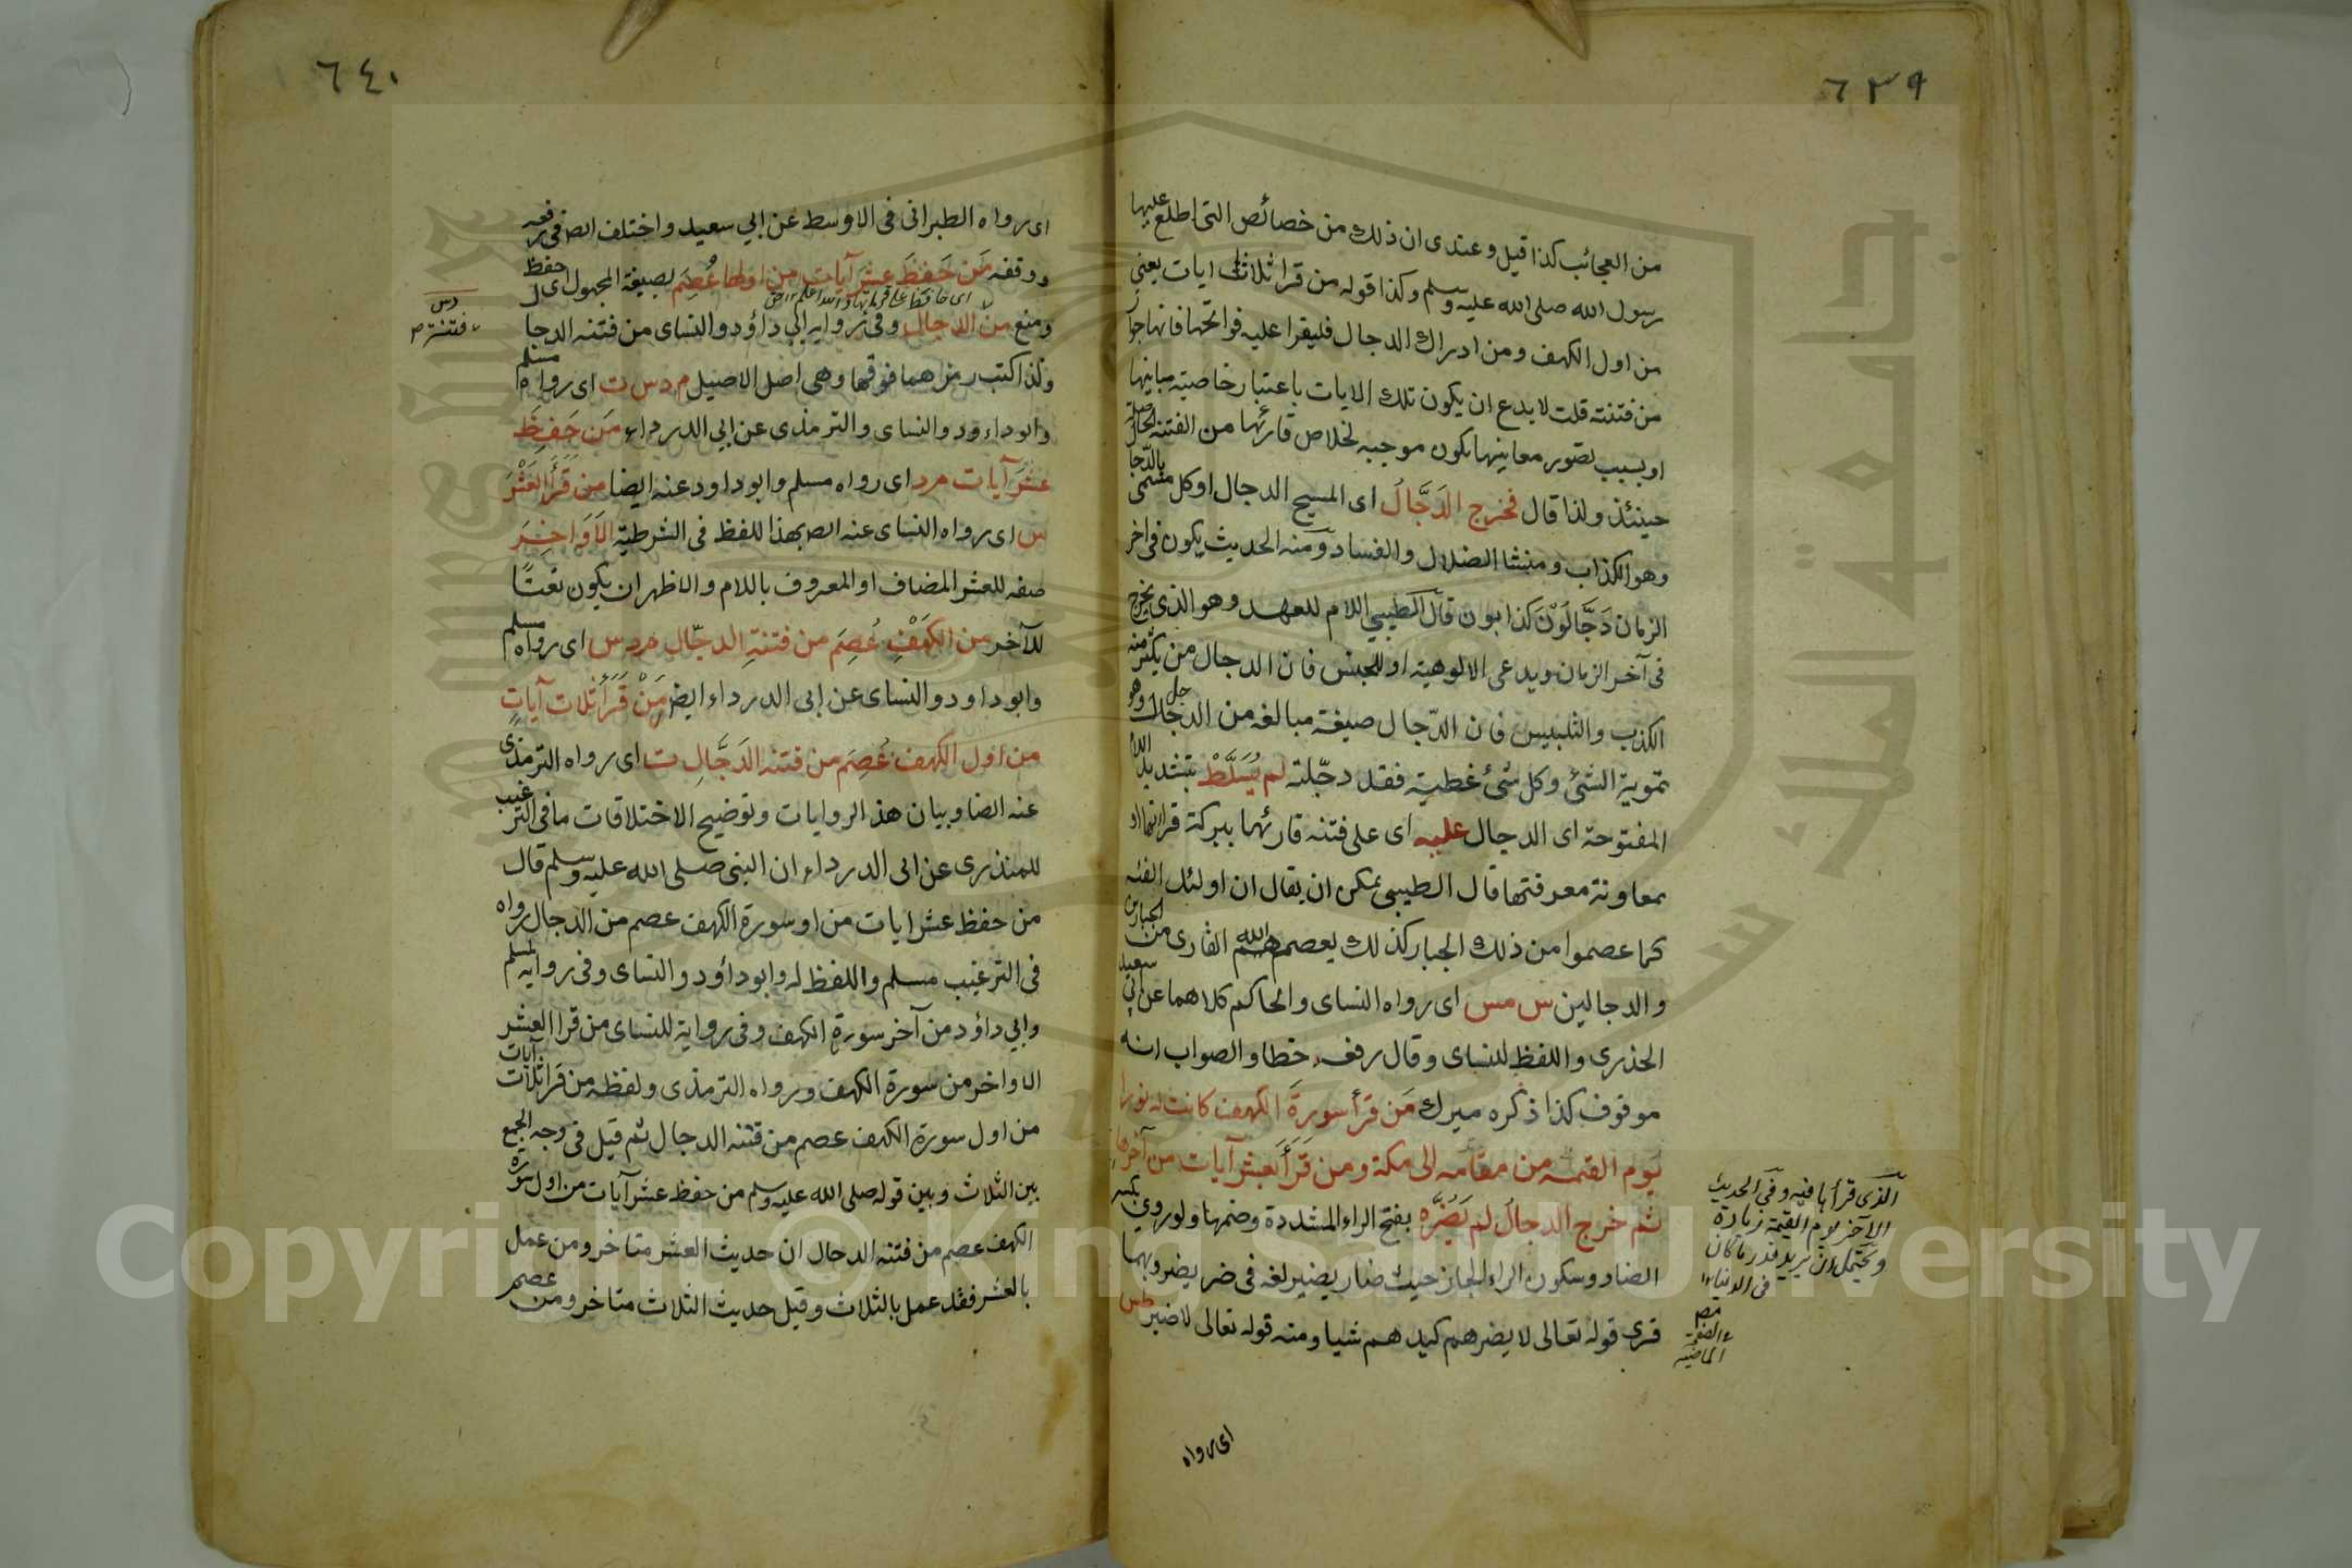 ٦٣٩
من العجائب كذا قيل وعندى ان ذلك من خصائص التى اطلع عليها
رسول الله صلى الله عليه وسلم وكذا قوله من قرا ثلاث ايات يعنى
من اول الكهف ومن ادرك الدجال فليقرا عليه فواتحها فانها جوا
من فتنته قلت لا بدع ان يكون تلك الايات باعتبار خاصيته مبانيها
او بسبب تصور معانيها تكون موجبه لخلاص قارئها من الفتنه
حينئذ ولذا قال فخرج الدَجَّالُ اى المسيح الدجال او كل مسمى بالدجا
وهو الكذاب ومنشا الضلال والفساد ومنه الحديث يكون فى اخر
الزمان دَجَّالُوْنَ كذابون قال الطيبي اللام للعهد وهو الذى يخرج
فى آخر الزمان ويدعى الالوهية او للجنس فان الدجال من يكثر منه
الكذب والتلبيس فان الدّجال صيغة مبالغه من الدجل وهو
تموية الشئ وكل شئ غطيته فقد دجّلته لم يُسَلَّطْ بتشديد اللام
المفتوحة اى الدجال عليه اى على فتنه قارئها ببركة قرائتها او
بمعاونة معرفتها قال الطيبي يمكن ان يقال ان اولئك الفئه
كما عصموا من ذلك الجبار كذلك يعصم الله القارى من الجبارين
والدجالين س مس اى رواه النساى والحاكم كلاهما عن ابى سعيد
الخذرى واللفظ للنساى وقال رفعه خطا والصواب انه
موقوف كذا ذكره ميرك مَن قرأ سورةَ الكهف كانت له نورا
يوم القيمه من مقامه الى مكة ومن قَرَأَ بعشر آيات من آخرها
ثم خرج الدجالُ لم يَضُرَّه بفتح الراء المشددة وضمها ولو روي بكسر
الضاد وسكون الراء لجاز حيث ضار يضير لغه فى ضر يضر وبهما
قرى قوله تعالى لا يضرهم كيدهم شيا ومنه قوله تعالى لا ضير طس
الذى قرأها فيه وفى الحديث
الآخر يوم القيمة زيادة
ويحتمل ان يريد قدر ما كان
فى الدنيا
اى رواه
٦٤٠
اى رواه الطبرانى فى الاوسط عن ابي سعيد واختلف الصـ فى رفعه
ووقفه مَن حَفِظَ عشرَ آيات من اولها عُصِمَ بصيغة المجهول اى حفظ
ومنع من الدجال وفى رواية ابي داؤد والنساى من فتنه الدجا
ولذا كتب رمزهما فوقها وهى اصل الاصيل م د س ت اى رواه مسلم
وابو داءود والنساى والترمذى عن ابي الدرداء مَن حَفِظَ
عشرَ آيات م د اى رواه مسلم وابو داود عنه ايضا من قَرَأَ العَشْرَ
س اى رواه النساى عنه الصـ بهذا للفظ فى الشرطية الاَوَاخِرَ
صفه للعشر المضاف او المعروف باللام والاظهر ان يكون نعتًا
للآخر من الكَهْفِ عُصِمَ من فتنةِ الدجّال م د س اى رواه مسلم
وابو داود والنساى عن ابى الدرداء ايضـ مَنْ قَرَأَ ثلاث آيات
من اول الكهف عُصِمَ من فتنه الدَجَّالِ ت اى رواه الترمذى
عنه الضا وبيان هذ الروايات وتوضيح الاختلاقات ما فى الترغيب
للمنذرى عن ابى الدرداء ان النبى صلى الله عليه وسلم قال
من حفظ عشر ايات من او سورة الكهف عصم من الدجال رواه
فى الترغيب مسلم واللفظ له وابو دائود والنساى وفى رواية لمسلم
وابي داؤد من آخر سورة الكهف وفى رواية للنساى من قرا العشر
الاواخر من سورة الكهف ورواه الترمذى ولفظه من قرا ثلاث آيات
من اول سورة الكهف عصم من فتنه الدجال ثم قيل فى وجه الجمع
بين الثلاث وبين قوله صلى الله عليه وسلم من حفظ عشر آيات من اول سورة
الكهف عصم من فتنه الدجال ان حديث العشر متاخر ومن عمل
بالعشر فقد عمل بالثلاث وقيل حديث الثلاث متاخر ومن عصم
د س
فتنة
جامعة الملك سعود
Copyright © King Saud University